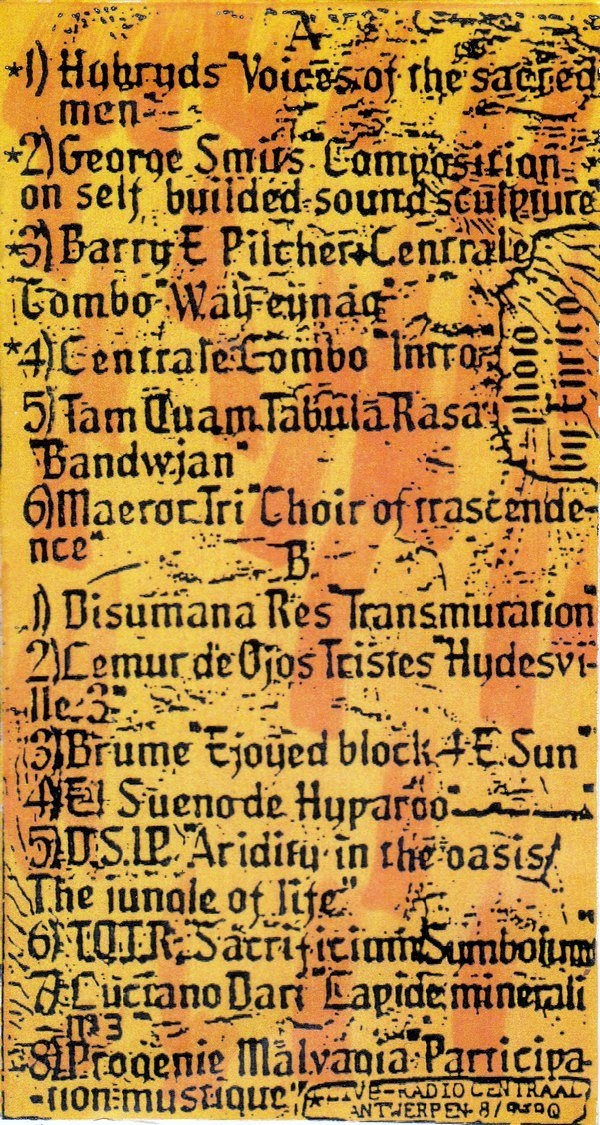 A
*1) Hybryds "Voices of the sacred
men"
*2) George Smits "Composition
on self builded sound sculpture"
*3) Barry E Pilcher+Centrale
Combo "Wal-eynaq"
*4) Centrale Combo "Intro"
5) Tam Quam Tabula Rasa
"Bandwjan"
6) Maeror Tri "Choir of trascende-
nce"
photo
by Enrico
B
1) Disumana Res "Transmutation"
2) Lemur de Ojos Tristes "Hydesvi-
lle 3"
3) Brume "Ejoyed block 4 E. Sun"
4) El Sueno de Hyparco "
5) D.S.I.P. "Aridity in the oasis/
The jungle of life"
6) T.Q.T.R. "Sacrificium Symbolum
7) Luciano Dari "Lapide minerali
n°3
8) Progenie Malvagia "Participa-
tion mustique"
*LIVE-RADIO CENTRAAL
ANTWERPEN 8/